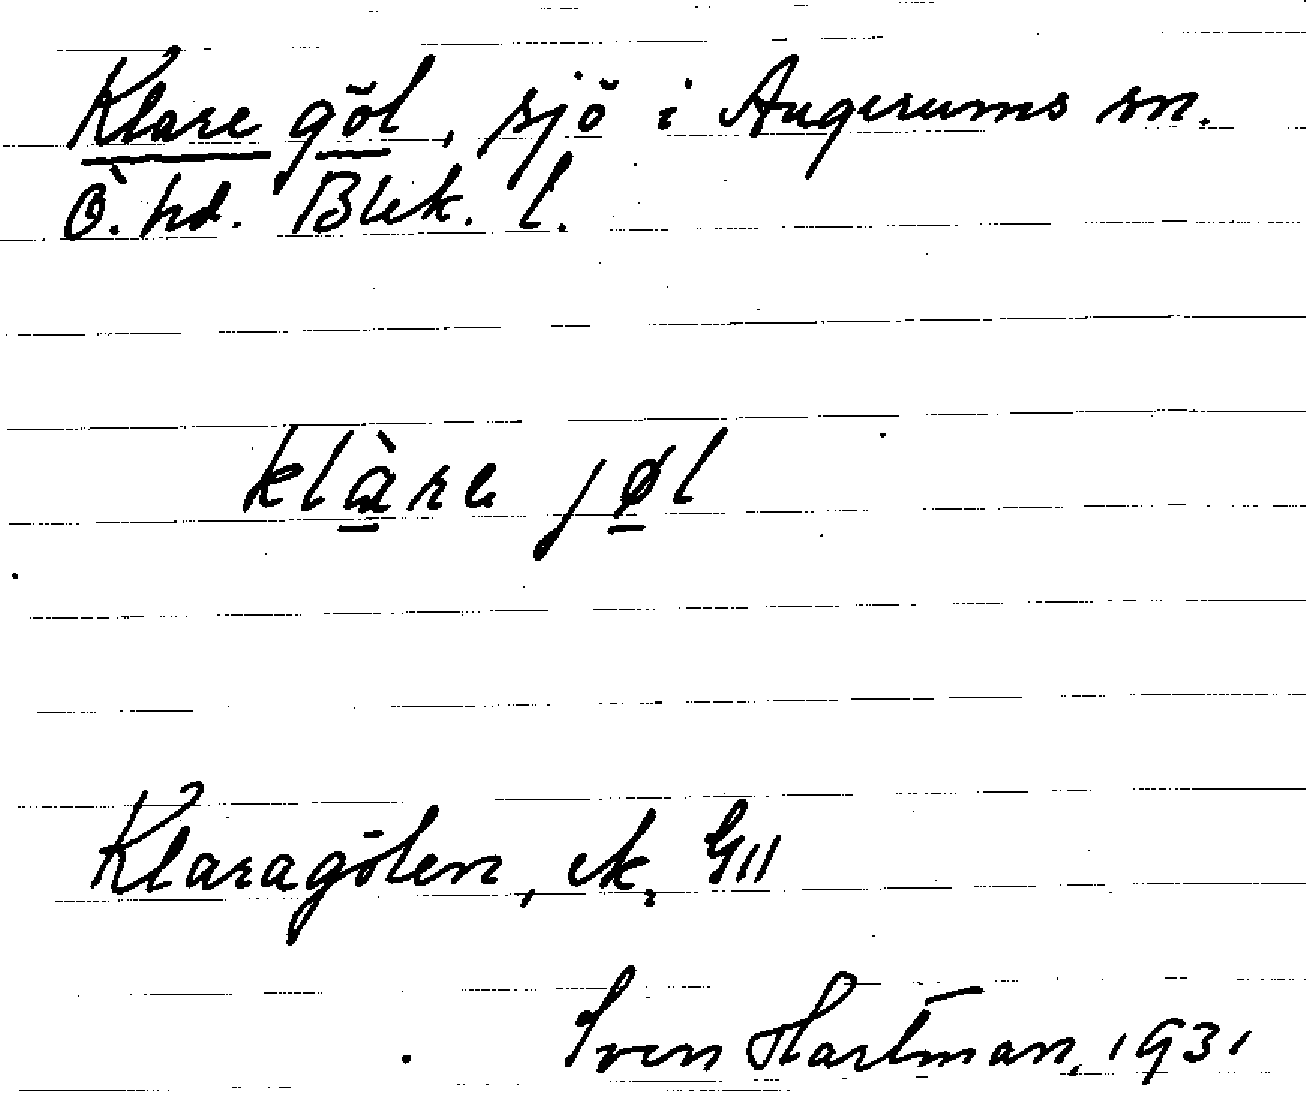 Klare göl, sjö i Augerums sn.
Ö. hd. Blek. l.
klàre jøl
Klaragölen, ek, GII
Sven Hartman, 1931